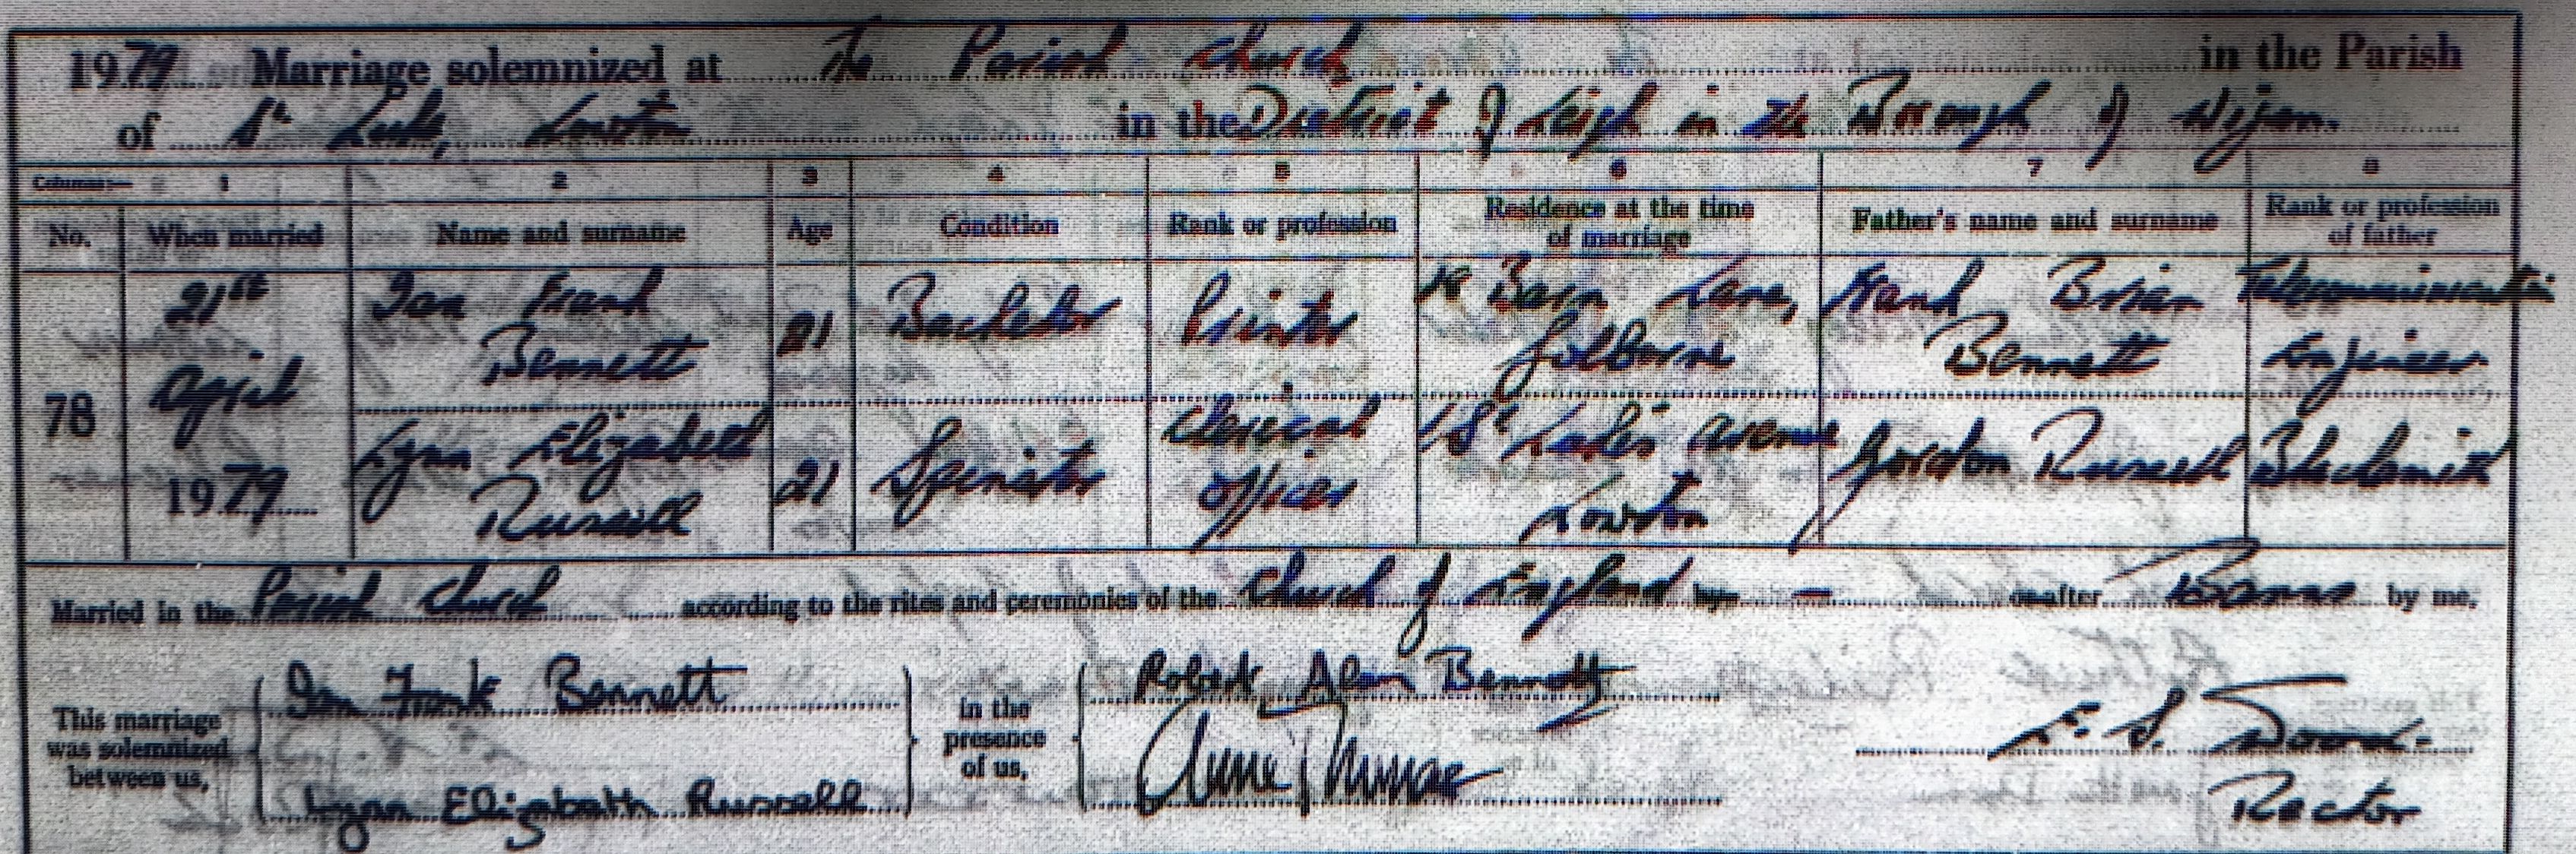 1979 Marriage solemnized at The Parish Church in the Parish
of St Luke, Lowton in the District of Leigh in the Borough of Wigan.
Columns:— 1 2 3 4 5 6 7 8
No. When married Name and surname Age Condition Rank or profession Residence at the time of marriage Father's name and surname Rank or profession of father
78 21st April 1979
Ian Frank Bennett 21 Bachelor Printer Barn Lane, Golborne Frank Brian Bennett Telecommunications Engineer
Lynn Elizabeth Russell 21 Spinster Clerical Officer St Luke's Avenue Lowton Gordon Russell Blacksmith
Married in the Parish Church according to the rites and ceremonies of the Church of England by — or after Banns by me,
This marriage was solemnized between us,
Ian Frank Bennett
Lynn Elizabeth Russell
in the presence of us,
Robert Alan Bennett
Anne
Rector